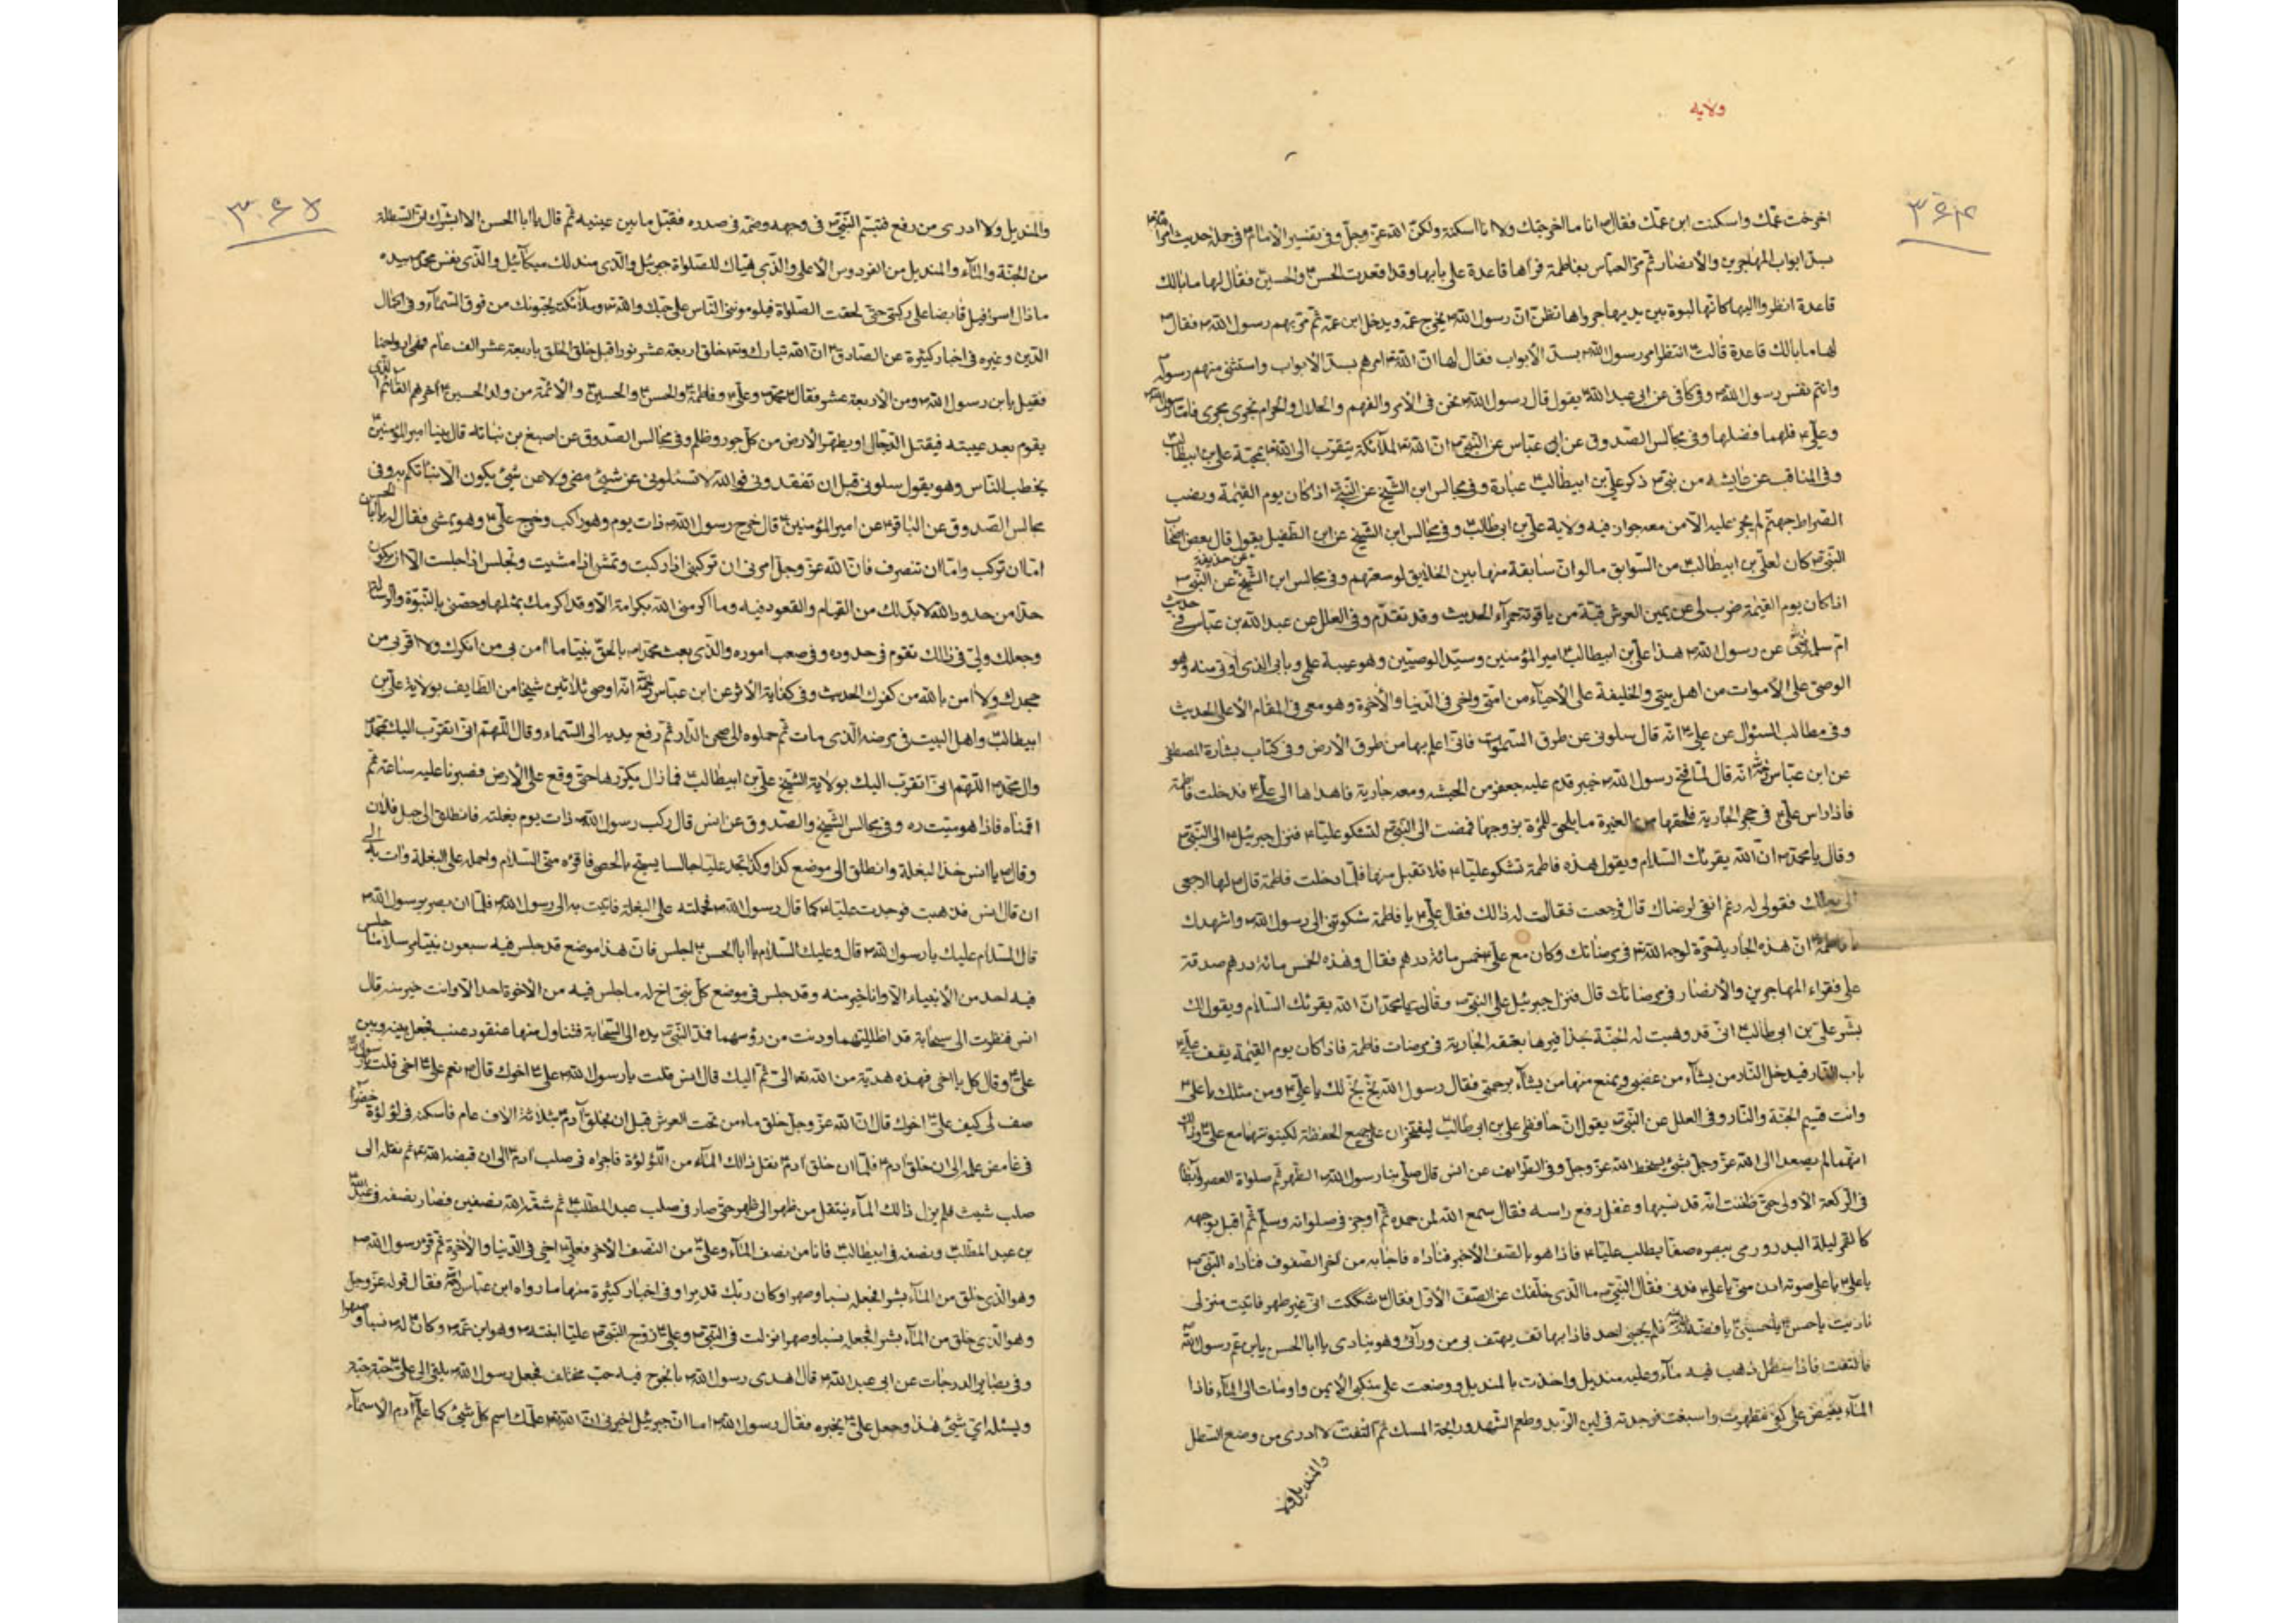 ولايه
٣۶۴
اخرجت عمّك واسكنت ابن عمّك فقال ما انا ما اخرجتك ولا انا اسكنته ولكنّ الله عزّ وجلّ وفى تفسير الامام فى جملة حديث
بسدّ ابواب المهاجرين والأنصار ثم مرّ العباس بفاطمة فرآها قاعدة على بابها وقد اقعدت الحسن والحسين فقال لها ما بالك
قاعدة انظروا اليها كانّها لبوة بين يديها جرواها تظنّ انّ رسول الله يخرج عمّه ويدخل ابن عمّه ثم مرّ بهم رسول الله فقال
لها ما بالك قاعدة قالت انتظر امر رسول الله بسدّ الأبواب فقال لها انّ الله امرهم بسدّ الأبواب واستثنى منهم رسوله
وانتم نفس رسول الله وفى كافى عن ابى عبد الله يقول قال رسول الله نحن فى الأمر والفهم والحلال والحرام نجرى مجرى فامّا رسول الله
وعلىّ فلهما فضلها وفى مجالس الصدوق عن ابن عباس عن النبىّ انّ الله الملآئكة يتقرّب الى الله بمحبّة على بن ابيطالب
وفى المناقب عن عايشه من بنى ذكر على بن ابيطالب عبادة وفى مجالس ابن الشيخ عن النبىّ اذا كان يوم القيمة ونصب
الصراط جهنّم لم يجز عليه الّا من معه جواز فيه ولاية على بن ابى طالب وفى مجالس ابن الشيخ عن ابن الطفيل يقول قال بعض اصحاب
النبىّ كان لعلىّ بن ابيطالب من السوابق ما لو انّ سابقة منها بين الخلايق لوسعتهم وفى مجالس ابن الشيخ عن حذيفة عن النبىّ
اذا كان يوم القيمة ضرب لى عن يمين العرش قبّة من ياقوتة حمرآء الحديث وقد تقدّم وفى العلل عن عبد الله بن عبّاس فى حديث
امّ سلمة عن رسول الله هذا على بن ابيطالب امير المؤمنين وسيّد الوصيّين وهو عيبة علمى وبابى الذى اوتى منه وهو
الوصىّ على الأموات من اهل بيتى والخليفة على الأحيآء من امّتى واخى فى الدنيا والأخرة وهو معى فى المقام الأعلى الحديث
وفى مطالب السئول عن علىّ انّه قال سلونى عن طرق السّموات فانّى اعلم بها من طرق الأرض وفى كتاب بشارة المصطفى
عن ابن عباس انّه قال لمّا فتح رسول الله خيبر قدم عليه جعفر من الحبشه ومعه جارية فاهداها الى علىّ فدخلت فاطمة
فاذا راس علىّ فى حجر الجارية فلحقها من الغيرة ما يلحق المرأة بزوجها فمضت الى النبىّ لتشكو عليّا فنزل جبرئيل الى النبىّ
وقال يا محمّد انّ الله يقرئك السّلام ويقول هذه فاطمة تشكو عليّا فلا تقبل منها فلمّا دخلت فاطمة قال لها ارجعى
الى بعلك فقولى له رغم انفى لرضاك قال فرجعت فقالت له ذالك فقال علىّ يا فاطمة شكوتنى الى رسول الله واشهدك
يا فاطمة انّ هذه الجارية حرّة لوجه الله فى مرضاتك وكان مع علىّ خمس مائة درهم فقال وهذه الخمس مائة درهم صدقة
على فقراء المهاجرين والأنصار فى مرضاتك قال فنزل جبرئيل على النبىّ وقال يا محمّد انّ الله يقرئك السّلام ويقول لك
بشّر علىّ بن ابى طالب انّى قد وهبت له الجنّة بحذافيرها بعتقه الجارية فى مرضات فاطمة فاذا كان يوم القيمة يقف على
باب النّار فيدخل النّار من يشآء من غضبى ويمنع منها من يشآء برحمتى فقال رسول الله بخّ بخّ لك يا علىّ ومن مثلك يا على
وانت قسيم الجنّة والنّار وفى العلل عن النبىّ يقول انّ حافظى على بن ابى طالب ليفتخران على جميع الحفظة لكينونتهما مع علىّ وذلك
انّهما لم يصعدا الى الله عزّ وجلّ بشئ يسخط الله عزّ وجلّ وفى الطرايف عن انس قال صلّى بنا رسول الله الظهر ثم صلواة العصر وابطأ
فى الركعة الأولى حتى ظننت انّه قد نسيها وغفل رفع راسه فقال سمع الله لمن حمده ثم اوجز فى صلواته وسلّم ثم اقبل بوجهه
كالقمر ليلة البدر ورمى ببصره صفّا يطلب عليّا فاذا هو بالصّف الأخير فناداه فاجابه من اخر الصّفوف فناداه النبىّ
يا على يا على صوته ادن منّى يا على فدنى فقال النبىّ ما الذى خلّفك عن الصّف الأوّل فقال شككت انّى غير طهر فاتيت منزلى
ناديت يا حسن يا حسين يا فضّه فلم يجبنى احد فاذا بهاتف يهتف بى من ورآئى وهو ينادى يا ابا الحسن يابن عمّ رسول الله
فالتفت فاذا بسطل ذهب فيه مآء وعليه منديل واخذت بالمنديل ووضعت على منكبى الأيمن واومات الى المآء فاذا
المآء يفيض على كفى فتطهرت واسبغت فوجدته فى لين الزبد وطعم الشّهد ورايحة المسك ثم التفت لا ادرى من وضع السّطل
والمنديل ولا
٣۶۵
والمنديل ولا ادرى من رفع فتبسّم النّبىّ فى وجهه وضمّه فى صدره فقبّل ما بين عينيه ثم قال يا ابا الحسن الا ابشّرك انّ السّطلة
من الجنّة والمآء والمنديل من الفردوس الأعلى والذى هيّاك للصّلواة جبرئيل والذى مندلك ميكآئيل والذى نفس محمّد بيده
ما ذال اسرافيل قابضا على ركبتى حتى لحقت الصّلواة فيلوموننى النّاس على حبّك والله وملآئكته يحبّونك من فوق السّمآء وفى اكمال
الدين وغيره فى اخبار كثيرة عن الصّادق انّ الله تبارك وتعالى خلق اربعة عشر نورا قبل خلق الخلق باربعة عشر الف عام فهى ارواحنا
فقيل يابن رسول الله ومن الأربعة عشر فقال محمّد وعلىّ وفاطمة والحسن والحسين والأئمّة من ولد الحسين اخرهم القائم الذى
يقوم بعد غيبته فيقتل الدّجّال ويطهّر الأرض من كلّ جور وظلم وفى مجالس الصّدوق عن اصبغ بن نباته قال بينا امير المؤمنين
يخطب النّاس وهو يقول سلونى قبل ان تفقدونى فوالله لا تسئلونى عن شئ مضى ولا عن شئ يكون الا نبّأتكم به وفى
مجالس الصّدوق عن الباقر عن امير المؤمنين قال خرج رسول الله ذات يوم وهو راكب وخرج علىّ وهو يمشى فقال له يا ابا الحسن
امّا ان تركب وامّا ان تنصرف فانّ الله عزّ وجلّ امرنى ان تركب اذا ركبت وتمشى اذا مشيت وتجلس اذا جلست الّا ان يكون
حدّا من حدود الله لا بدّ لك من القيام والقعود فيه وما اكرمنى الله بكرامة الّا وقد اكرمك بمثلها وخصّنى بالنّبوّة والرسالة
وجعلك وليّى فى ذالك تقوم فى حدوده وفى صعب اموره والذى بعث محمّدا بالحقّ نبيّا ما امن بى من انكرك ولا اقرّ بى من
جحدك ولا امن بالله من كفرك الحديث وفى كفاية الأثر عن ابن عباس انّه اوصى ثلاثين شيخا من الطّايف بولاية على بن
ابيطالب واهل البيت فى مرضه الذى مات ثم حملوه الى صحن الدّار ثم رفع يديه الى السّماء وقال اللّهمّ انّى اتقرّب اليك بمحمّد
وال محمّد اللّهمّ انّى اتقرّب اليك بولاية الشّيخ علىّ بن ابيطالب فما ذال يكرّرها حتى وقع على الأرض فصبرنا عليه ساعة ثم
اقمناه فاذا هو ميّت ره وفى مجالس الشّيخ والصّدوق عن انس قال ركب رسول الله ذات يوم بغلته فانطلق الى جبل فلان
وقال يا انس خذ البغلة وانطلق الى موضع كذا وكذا تجد عليّا جالسا يسبّح بالحصى فاقرءه منّى السّلام واحمله على البغلة وات به الى
ان قال انس فذهبت فوجدت عليّا كما قال رسول الله فحملته على البغلة فاتيت به الى رسول الله فلمّا ان بصر برسول الله
قال السّلام عليك يا رسول الله قال وعليك السّلام يا ابا الحسن اجلس فانّ هذا موضع قد جلس فيه سبعون نبيّا مرسلا ما جلس
فيه احد من الأنبياء الّا وانا خير منه وقد جلس فى موضع كلّ نبىّ اخ له ما جلس فيه من الأخوة احد الّا وانت خير منه قال
انس فنظرت الى سحابة قد اظلّتهما ودنت من رؤسهما فمدّ النّبىّ يده الى السّحابة فتناول منها عنقود عنب فجعل بينه وبين
علىّ وقال كل يا اخى فهذه هديّة من الله تعالى الىّ ثم اليك قال انس فقلت يا رسول الله على اخوك قال نعم على اخى قلت يا رسول الله
صف لى كيف على اخوك قال انّ الله عزّ وجلّ خلق ماء من تحت العرش قبل ان يخلق آدم بثلاثة الاف عام فاسكنه فى لؤلؤة خضرآء
فى غامض علمه الى ان خلق آدم فلمّا ان خلق آدم نقل ذالك المآء من اللّؤلؤة فاجراه فى صلب آدم الى ان قبضه الله ثم نقله الى
صلب شيث فلم يزل ذالك المآء ينتقل من ظهر الى ظهر حتى صار فى صلب عبد المطّلب ثم شقّه الله نصفين فصار نصفه فى عبد الله
بن عبد المطّلب ونصفه فى ابيطالب فانا من نصف المآء وعلىّ من النّصف الآخر فعلىّ اخى فى الدّنيا والأخرة ثم قرء رسول الله
وهو الذى خلق من المآء بشرا فجعله نسبا وصهرا وكان ربّك قديرا وفى اخبار كثيرة منها ما رواه ابن عبّاس فقال قوله عزّ وجلّ
وهو الّذى خلق من المآء بشرا فجعله نسبا وصهرا نزلت فى النّبىّ وعلىّ زوّج النّبىّ عليّا ابنته وهو ابن عمّه وكان له نسبا وصهرا
وفى بصاير الدرجات عن ابى عبد الله قال اهدى رسول الله فيه حبّ مختلف فجعل رسول الله يلقى الى علىّ حبّة حبّة
ويسئله اىّ شئ هذا وجعل علىّ يخبره فقال رسول الله اما انّ جبرئيل اخبرنى انّ الله علّمك اسم كلّ شئ كما علّم آدم الأسمآء